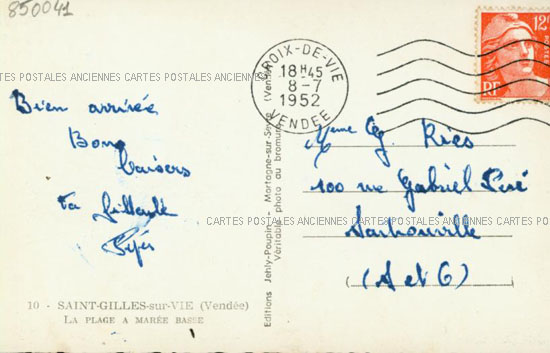 850041
12F
RF
CROIX-DE-VIE
18H45
8-7
1952
VENDEE
CARTES POSTALES ANCIENNES CARTES POSTALES ANCIENNES CARTES POSTALES ANCIENNES CARTES POSTALES ANCIENNES
Bien arrivée
Bons
baisers
ta
Editions Jehly-Poupin - Mortagne-sur-Sèvre (Vendée)
Véritable photo au bromure
Mme G. Ries
100 rue Gabriel Péri
Sartrouville
(S et O)
CARTES POSTALES ANCIENNES CARTES POSTALES ANCIENNES CARTES POSTALES
10 - SAINT-GILLES-sur-VIE (Vendée)
LA PLAGE A MARÉE BASSE